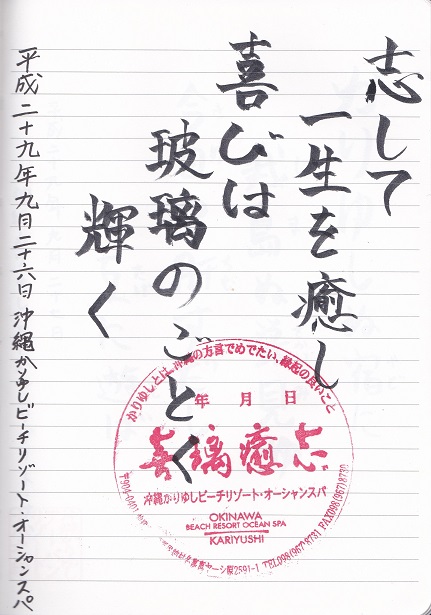 志して
一生を癒し
喜びは
玻璃のごとく
輝く
平成二十九年九月二十六日 沖縄かりゆしビーチリゾート・オーシャンスパ
かりゆしとは、沖縄の方言でめでたい、縁起の良いこと
年 月 日
喜璃癒志
沖縄かりゆしビーチリゾート・オーシャンスパ
OKINAWA
BEACH RESORT OCEAN SPA
KARIYUSHI
〒904-0401 2591-1 TEL098(967)8731 FAX098(967)8730